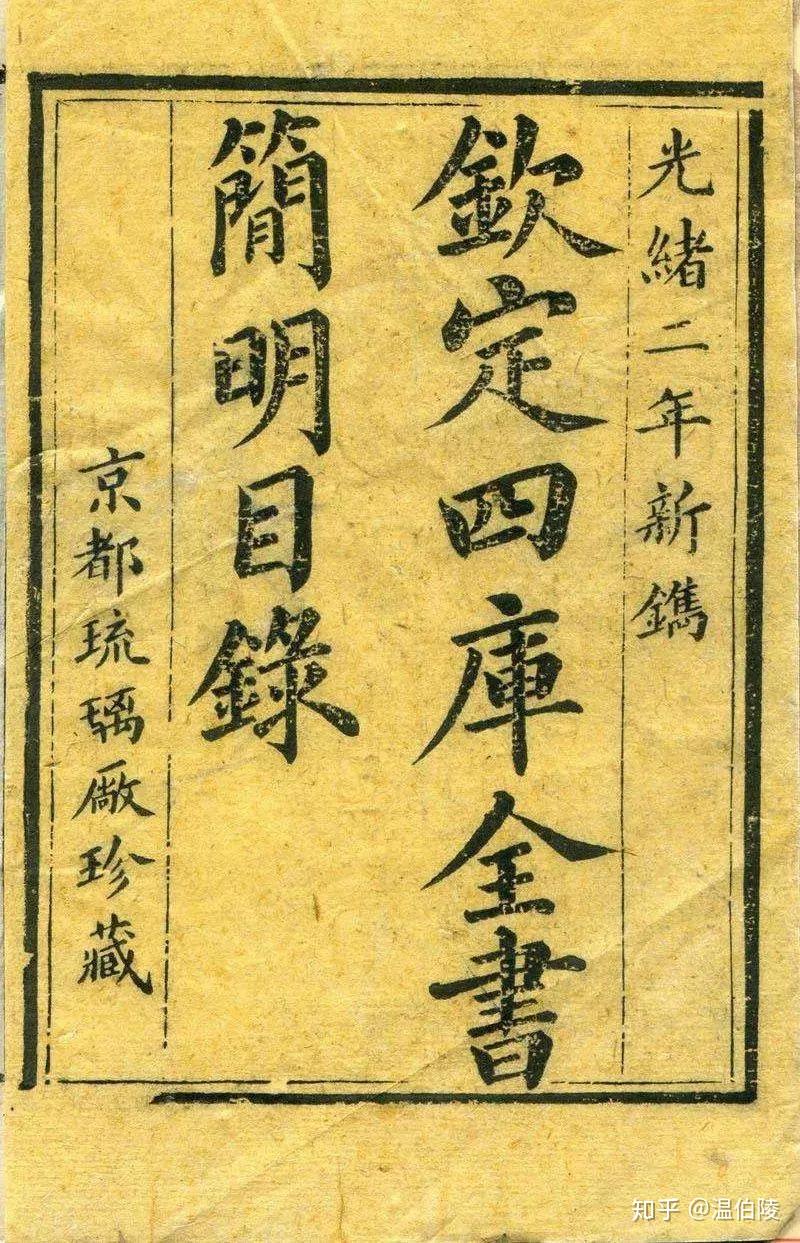 光緒二年新鐫
欽定四庫全書
簡明目錄
京都琉璃厰珍藏
知乎 @温伯陵